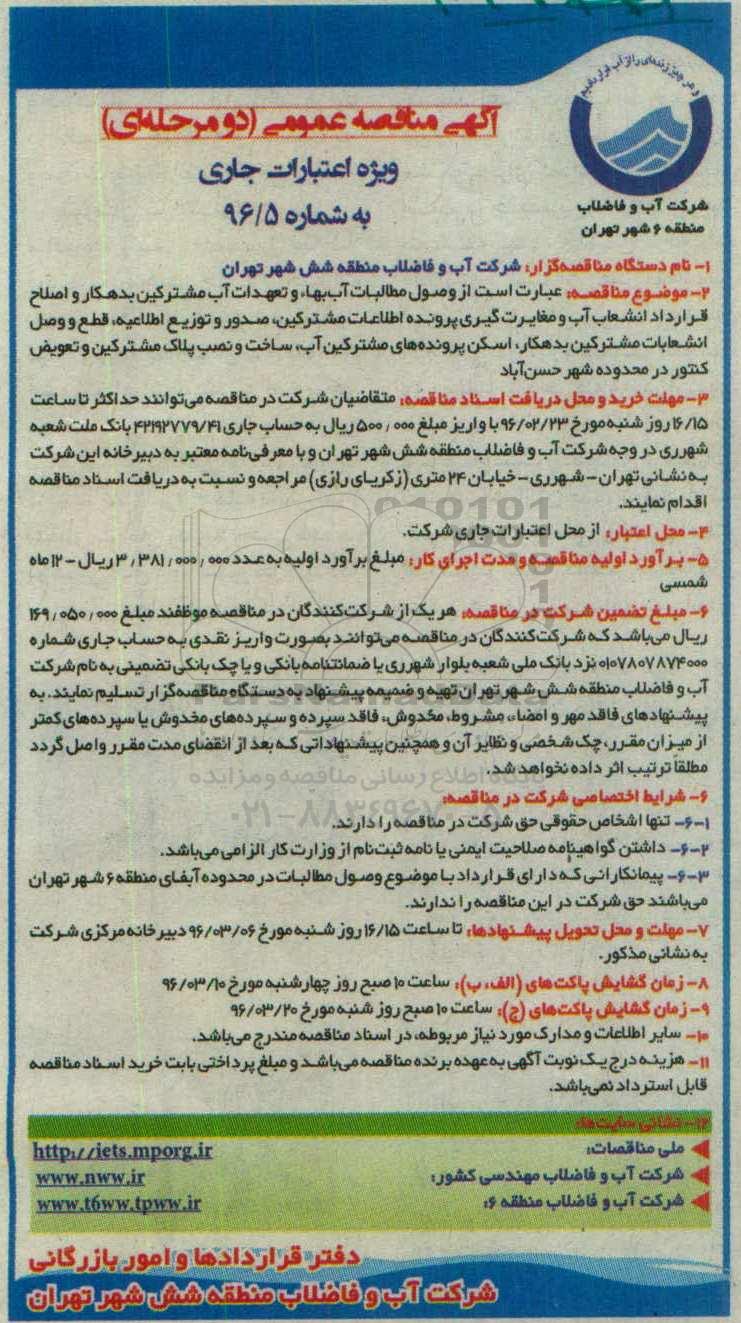 و هر چیز زنده‌ای را از آب قرار دادیم
شرکت آب و فاضلاب
منطقه ۶ شهر تهران
آگهی مناقصه عمومی (دو مرحله‌ای)
ویژه اعتبارات جاری
به شماره ۹۶/۵
۱- نام دستگاه مناقصه‌گزار: شرکت آب و فاضلاب منطقه شش شهر تهران
۲- موضوع مناقصه: عبارت است از وصول مطالبات آب‌بها، و تعهدات آب مشترکین بدهکار و اصلاح
قرارداد انشعاب آب و مغایرت گیری پرونده اطلاعات مشترکین، صدور و توزیع اطلاعیه، قطع و وصل
انشعابات مشترکین بدهکار، اسکن پرونده‌های مشترکین آب، ساخت و نصب پلاک مشترکین و تعویض
کنتور در محدوده شهر حسن‌آباد
۳- مهلت خرید و محل دریافت اسناد مناقصه: متقاضیان شرکت در مناقصه می‌توانند حداکثر تا ساعت
۱۶/۱۵ روز شنبه مورخ ۹۶/۰۲/۲۳ با واریز مبلغ ۵۰۰٫۰۰۰ ریال به حساب جاری ۴۲۱۹۲۷۷۹/۴۱ بانک ملت شعبه
شهرری در وجه شرکت آب و فاضلاب منطقه شش شهر تهران و با معرفی‌نامه معتبر به دبیرخانه این شرکت
به نشانی تهران - شهرری - خیابان ۲۴ متری (زکریای رازی) مراجعه و نسبت به دریافت اسناد مناقصه
اقدام نمایند.
۴- محل اعتبار: از محل اعتبارات جاری شرکت.
۵- برآورد اولیه مناقصه و مدت اجرای کار: مبلغ برآورد اولیه به عدد ۳٫۳۸۱٫۰۰۰٫۰۰۰ ریال - ۱۲ ماه
شمسی
۶- مبلغ تضمین شرکت در مناقصه: هر یک از شرکت‌کنندگان در مناقصه موظفند مبلغ ۱۶۹٫۰۵۰٫۰۰۰
ریال می‌باشد که شرکت‌کنندگان در مناقصه می‌توانند بصورت واریز نقدی به حساب جاری شماره
۰۱۰۷۸۰۷۸۷۴۰۰۰ نزد بانک ملی شعبه بلوار شهرری یا ضمانتنامه بانکی و یا چک بانکی تضمینی به نام شرکت
آب و فاضلاب منطقه شش شهر تهران تهیه و ضمیمه پیشنهاد به دستگاه مناقصه‌گزار تسلیم نمایند. به
پیشنهادهای فاقد مهر و امضاء، مشروط، مخدوش، فاقد سپرده و سپرده‌های مخدوش یا سپرده‌های کمتر
از میزان مقرر، چک شخصی و نظایر آن و همچنین پیشنهاداتی که بعد از انقضای مدت مقرر واصل گردد
مطلقا ترتیب اثر داده نخواهد شد.
پایگاه اطلاع رسانی مناقصه و مزایده
۶- شرایط اختصاصی شرکت در مناقصه:
۶-۱- تنها اشخاص حقوقی حق شرکت در مناقصه را دارند.
۶-۲- داشتن گواهینامه صلاحیت ایمنی یا نامه ثبت‌نام از وزارت کار الزامی می‌باشد.
۶-۳- پیمانکارانی که دارای قرارداد با موضوع وصول مطالبات در محدوده آبفای منطقه ۶ شهر تهران
می‌باشند حق شرکت در این مناقصه را ندارند.
۷- مهلت و محل تحویل پیشنهادها: تا ساعت ۱۶/۱۵ روز شنبه مورخ ۹۶/۰۳/۰۶ دبیرخانه مرکزی شرکت
به نشانی مذکور.
۸- زمان گشایش پاکت‌های (الف، ب): ساعت ۱۰ صبح روز چهارشنبه مورخ ۹۶/۰۳/۱۰
۹- زمان گشایش پاکت‌های (ج): ساعت ۱۰ صبح روز شنبه مورخ ۹۶/۰۳/۲۰
۱۰- سایر اطلاعات و مدارک مورد نیاز مربوطه، در اسناد مناقصه مندرج می‌باشد.
۱۱- هزینه درج یک نوبت آگهی به عهده برنده مناقصه می‌باشد و مبلغ پرداختی بابت خرید اسناد مناقصه
قابل استرداد نمی‌باشد.
۱۲- نشانی سایت‌ها:
ملی مناقصات: http://iets.mporg.ir
شرکت آب و فاضلاب مهندسی کشور: www.nww.ir
شرکت آب و فاضلاب منطقه ۶: www.t6ww.tpww.ir
دفتر قراردادها و امور بازرگانی
شرکت آب و فاضلاب منطقه شش شهر تهران